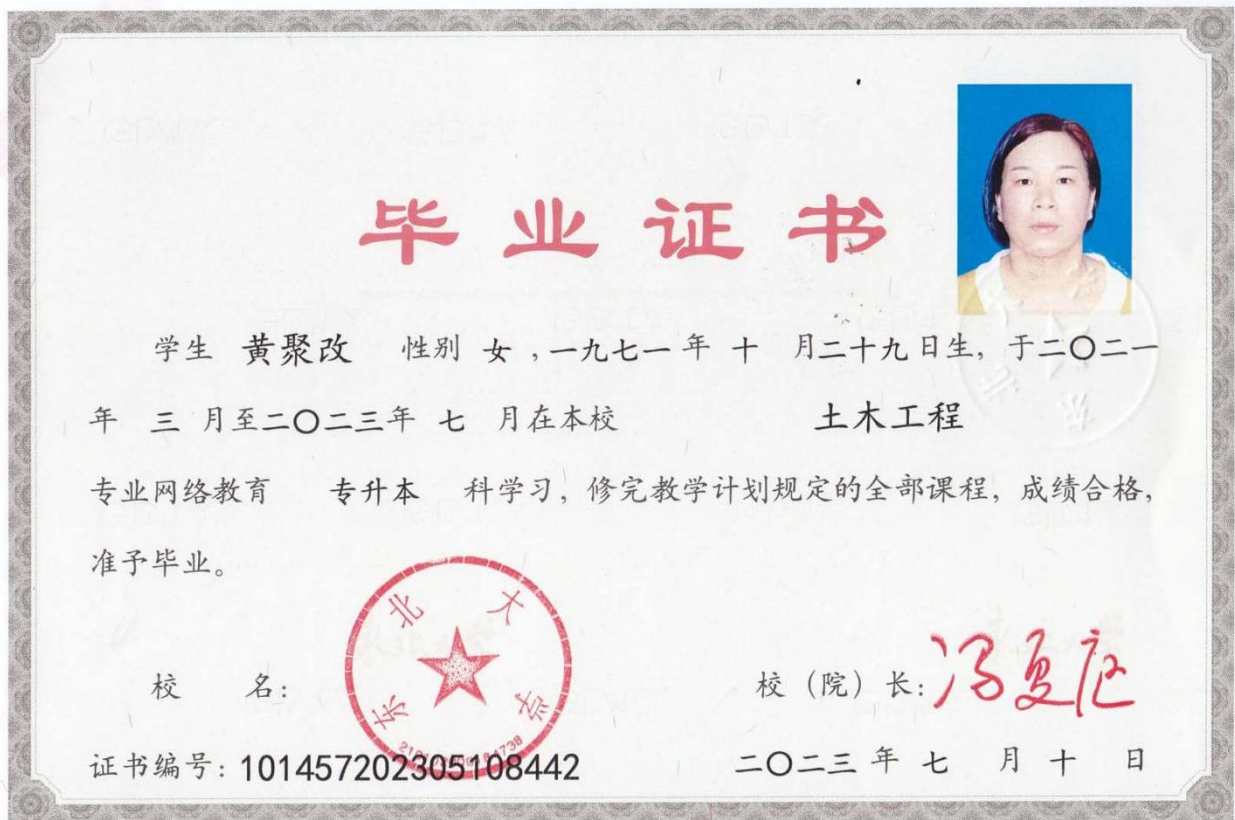 毕业证书
学生 黄聚改 性别 女 ,一九七一 年 十 月二十九日生, 于二〇二一
年 三 月至二〇二三年 七 月在本校 土木工程
专业网络教育 专升本 科学习, 修完教学计划规定的全部课程, 成绩合格,
准予毕业。
东北大学
校 名:
校（院）长: 冯夏庭
证书编号: 101457202305108442
二〇二三 年 七 月 十 日